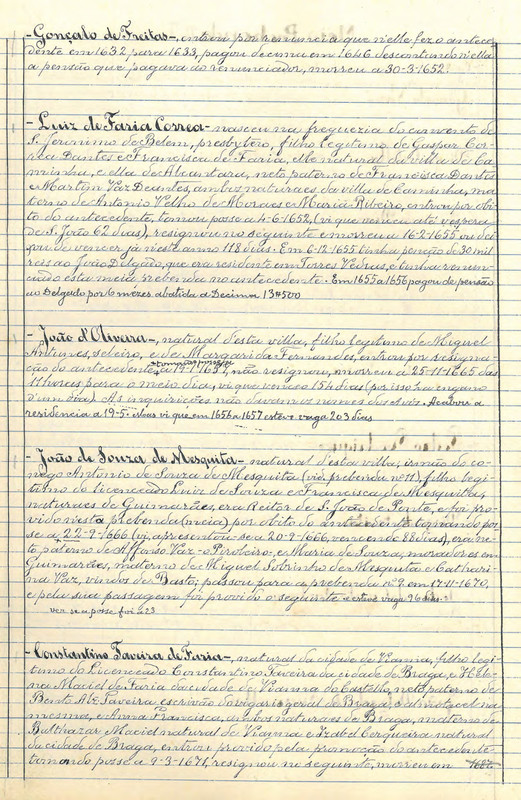 -Gonçalo de Freitas-, entrou por renuncia que n'elle fez o antece-
dente em 1632 para 1633, pagou decima em 1646 descontando n'ella
a pensão que pagava ao renunciador, morreu a 30-3-1652.
-Luiz de Faria Correa- nasceu na freguezia do convento de
S. Jeronimo de Belem, presbytero, filho legitimo de Gaspar Cor-
rêa Dantes e Francisca de Faria, elle natural da villa de Ca-
minha, e ella de Alcantara, neto paterno de Francisco Dantes
e Martha Vaz Dantes, ambos naturaes da villa de Caminha, ma-
terno de Antonio Velho de Moraes e Maria Ribeiro, entrou por obi-
to do antecedente, tomou posse a 4-6-1652, (vi que venceu até vespera
de S. João 62 dias), resignou no seguinte e morreu a 16-2-1655 ou dei-
xou de vencer já n'este anno 118 dias. Em 6-12-1655 tinha penção de 30 mil
reis ao João Delgado, que era residente em Torres Vedras, e tinha renun-
ciado esta meia prebenda no antecedente. Em 1655 a 1656 pagou de pensão
ao Delgado por 6 mezes abatida a Decima 13$500
-João d'Oliveira-, natural d'esta villa, filho legitimo de Miguel
Antunes, seleiro, e de Margarida Fernandes, entrou por resigna-
ção do antecedente, tomou posse a 19-1-1657, não resignou, morreu a 25-11-1665 das
11 horas para o meio dia, vi que venceu 154 dias (por isso ha engano
d'um dia). As inquirições não davam os nomes dos avós. Acabou a
residencia a 19-5. Mas vi que em 1656 a 1657 esteve vaga 203 dias
-João de Souza de Mesquita- natural d'esta villa, irmão do co-
nego Antonio de Souza de Mesquita (vid. prebenda nº 11), filho legi-
timo do Licenceado Luiz de Souza e Francisca de Mesquita,
naturaes de Guimarães, era Reitor de S. João de Ponte, e foi pro-
vido n'esta prebenda (meia) por obito do antecedente tomando pos-
se a 22-9-1666 (vi, apresentou-se a 20-9-1666, vencendo 88 dias), era ne-
to paterno de Affonso Vaz-o Piroleiro- e Maria de Souza, moradores em
Guimarães, materno de Miguel Sobrinho de Mesquita e Cathari-
na Vaz, vindos de Basto, passou para a prebenda nº 9 em 17-11-1670,
e pela sua passagem foi provido o seguinte e esteve vaga 96 dias-?
ver se a posse foi a 23
-Constantino Taveira de Faria-, natural da cidade de Vianna, filho legi-
timo do Licenceado Constantino Taveira da cidade de Braga, e Hele-
na Maciel de Faria da cidade de Vianna do Castello, neto paterno de
Bento Alz Taveira escrivão do vigario geral de Braga, e almotacel na
mesma, e Anna Francisca, ambos naturaes de Braga, materno de
Balthazar Maciel natural de Vianna e Izabel Cerqueira natural
da cidade de Braga, entrou e provido pela promoção do antecedente
tomando posse a 9-3-1671, resignou no seguinte, morreu em